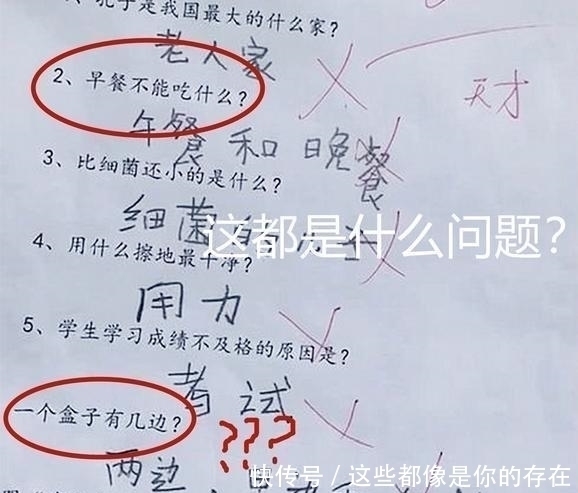 、孔子是我国最大的什么家?
老人家
天才
2、早餐不能吃什么?
午餐和晚餐
3、比细菌还小的是什么?
细菌的
这都是什么问题?
4、用什么擦地最干净?
用力
5、学生学习成绩不及格的原因是?
考试
一个盒子有几边?
???
两边
快传号/这些都像是你的存在